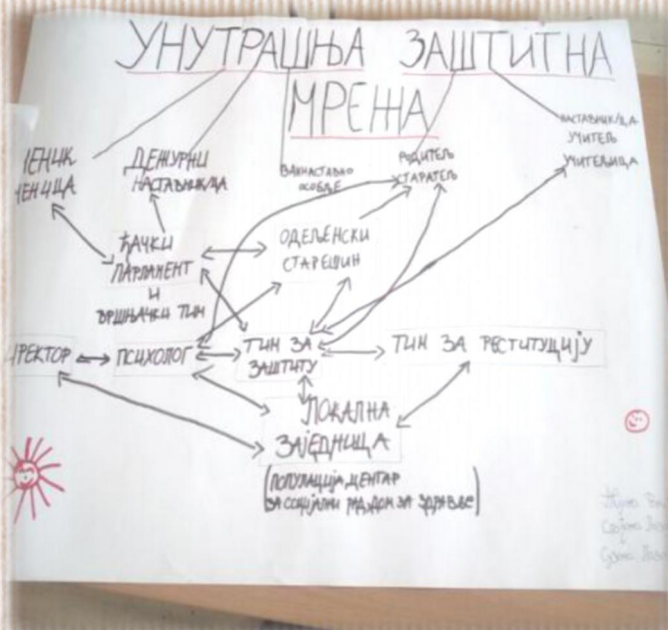 УНУТРАШЊА ЗАШТИТНА
МРЕЖА
ЧЕНИК
ЧЕНИЦА
ДЕЖУРНИ
НАСТАВНИК/ЦА
ВАННАСТАВНО
ОСОБЉЕ
РОДИТЕЉ
СТАРАТЕЉ
НАСТАВНИК/ЦА
УЧИТЕЉ
УЧИТЕЉИЦА
ЂАЧКИ
ПАРЛАМЕНТ
И
ВРШЊАЧКИ ТИМ
ОДЕЉЕНСКИ
СТАРЕШИН
ИРЕКТОР
ПСИХОЛОГ
ТИМ ЗА
ЗАШТИТУ
ТИМ ЗА РЕСТИТУЦИЈУ
ЛОКАЛНА
ЗАЈЕДНИЦА
(ПОПУЛАЦИЈА, ЦЕНТАР
ЗА СОЦИЈАЛНИ РАД, ДОМ ЗА ЗДРАВЉЕ)